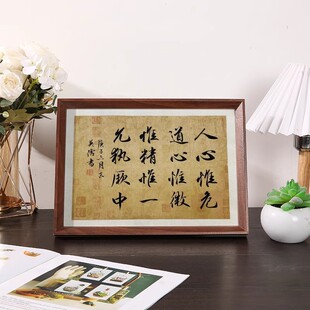 人心惟危
道心惟微
惟精惟一
允執厥中